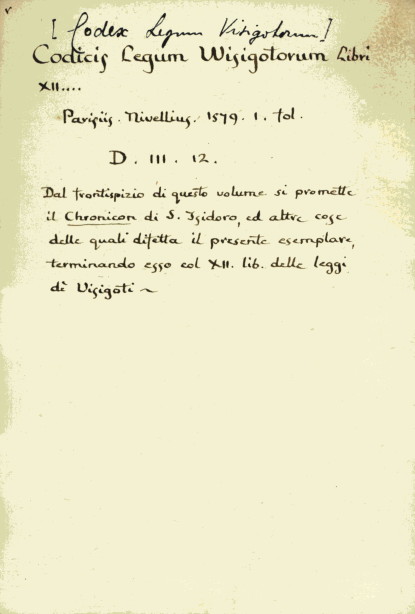 [ Codex Legum Visigotorum ]
Codicis Legum Wisigotorum Libri
XII....
Parisiis. Nivellius. 1579. 1. fol.
D. III. 12.
Dal frontispizio di questo volume si promette
il Chronicon di S. Isidoro, ed altre cose
delle quali difetta il presente esemplare,
terminando esso col XII. lib. delle leggi
di Visigoti ~